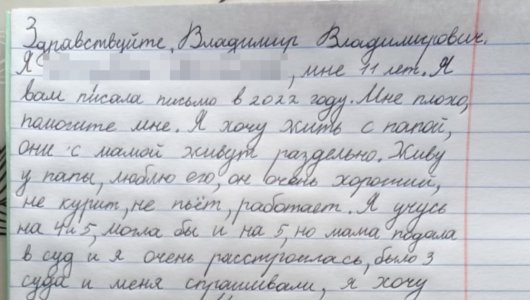 Здравствуйте, Владимир Владимирович.
Я , мне 11 лет. Я
вам писала письмо в 2022 году. Мне плохо,
помогите мне. Я хочу жить с папой,
они с мамой живут раздельно. Живу
у папы, люблю его, он очень хороший,
не курит, не пьёт, работает. Я учусь
на 4 и 5, могла бы и на 5, но мама подала
в суд и я очень расстроилась, было 3
суда и меня спрашивали, я хочу